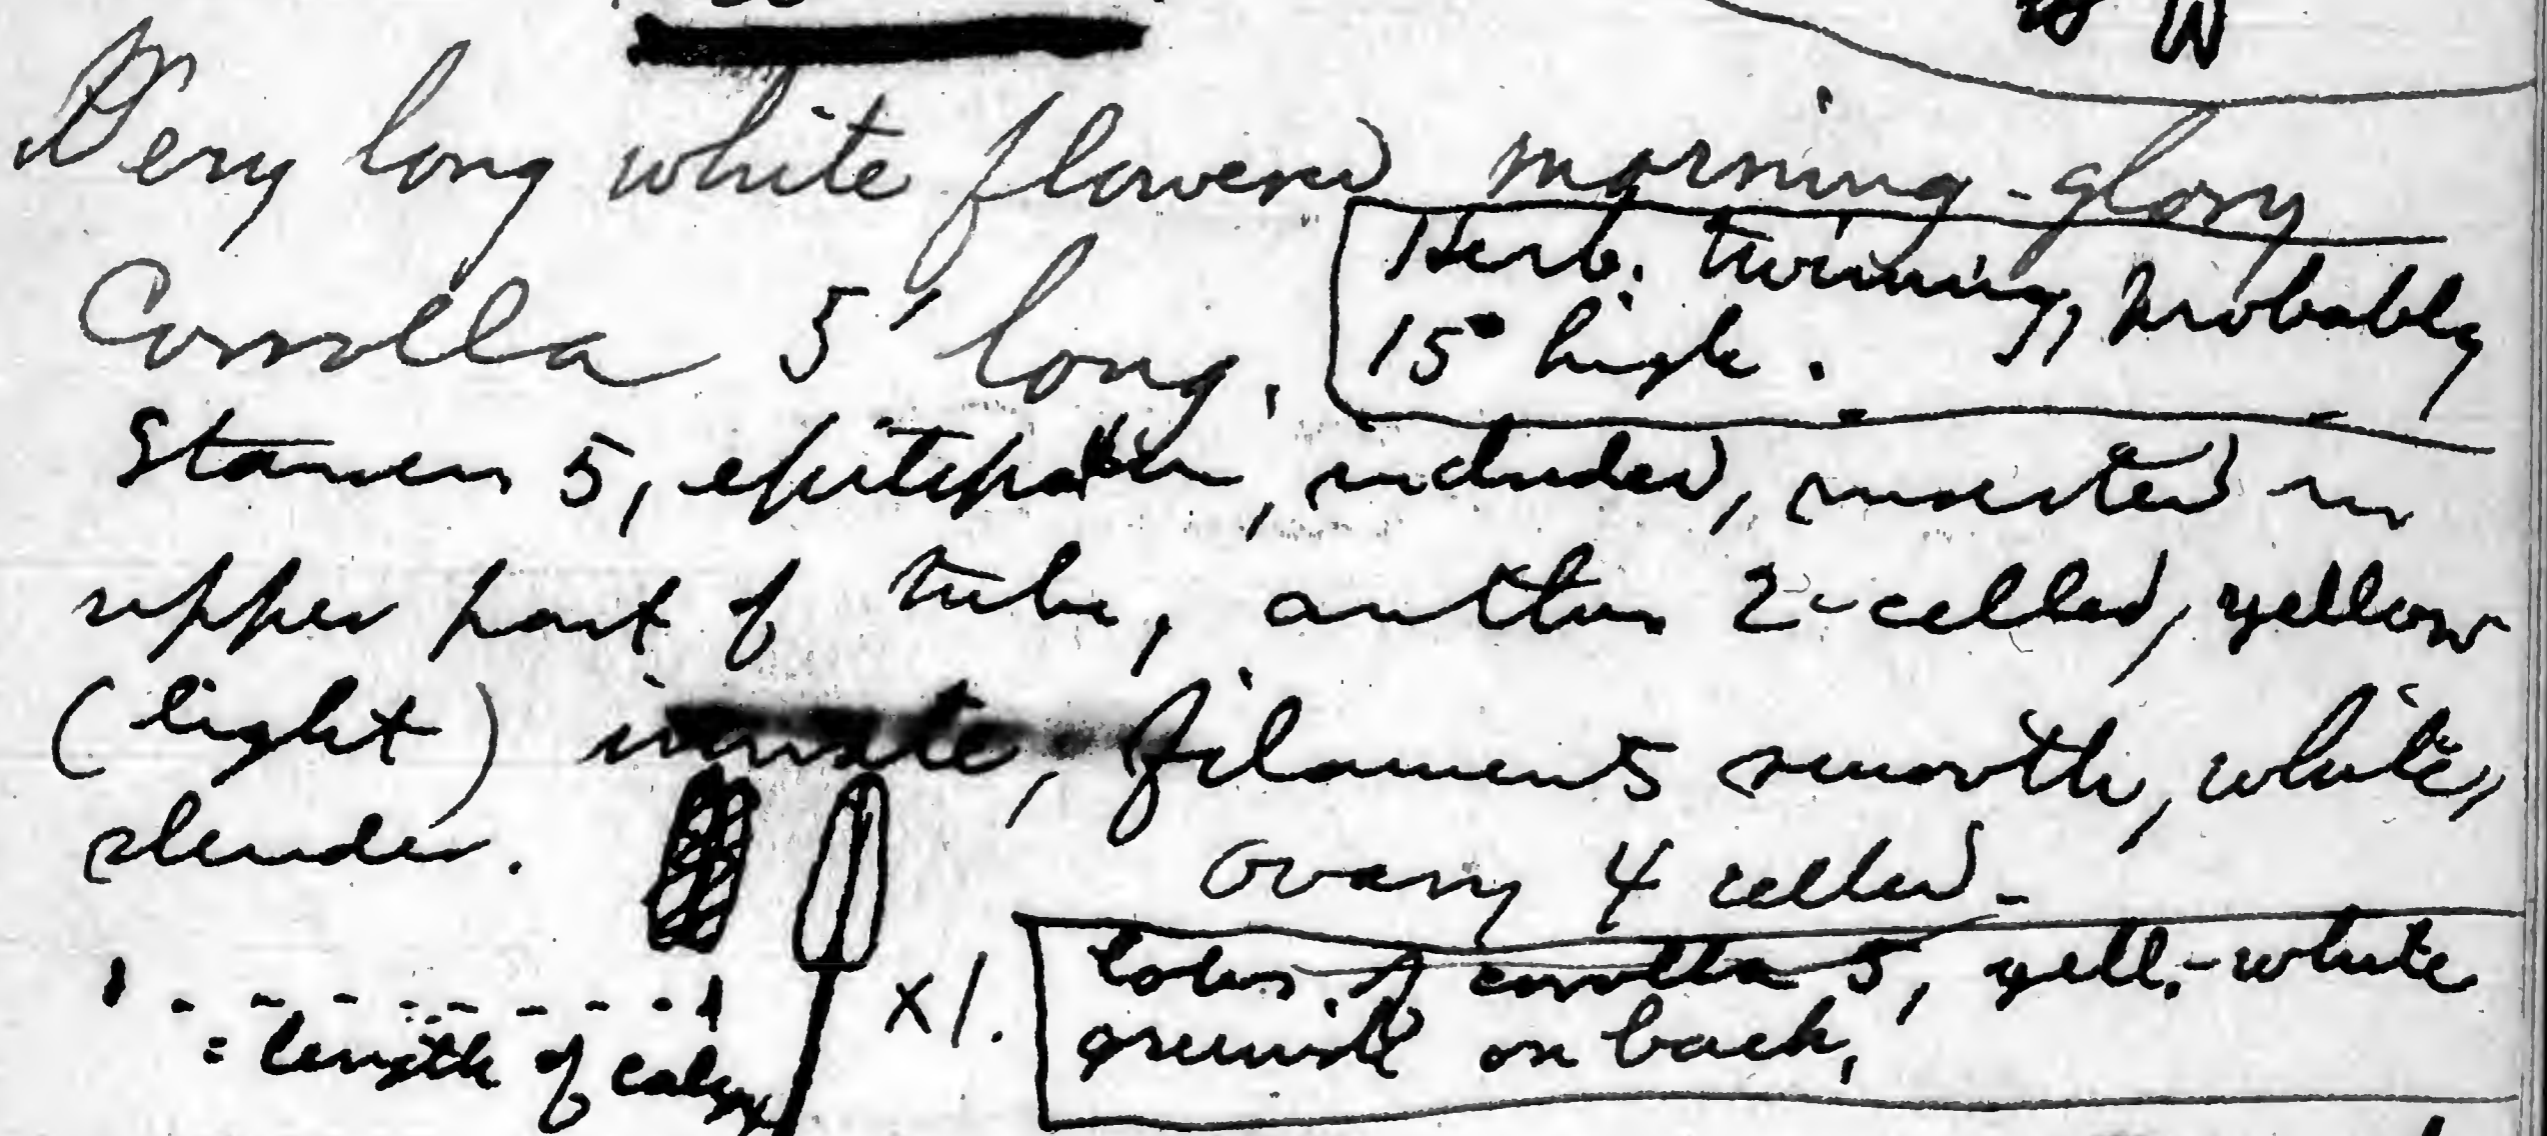 Very long white flowered morning-glory
Corolla 5' long.
Herb. twining, probably
15° high.
Stamens 5, epipetalous, included, inserted in
upper part of tube, anthers 2-celled, yellow
(light) innate, filaments smooth, white,
slender.
Ovary 4 celled-
x1.
= length of calyx
Lobes of corolla 5, yell.-white
greenish on back.